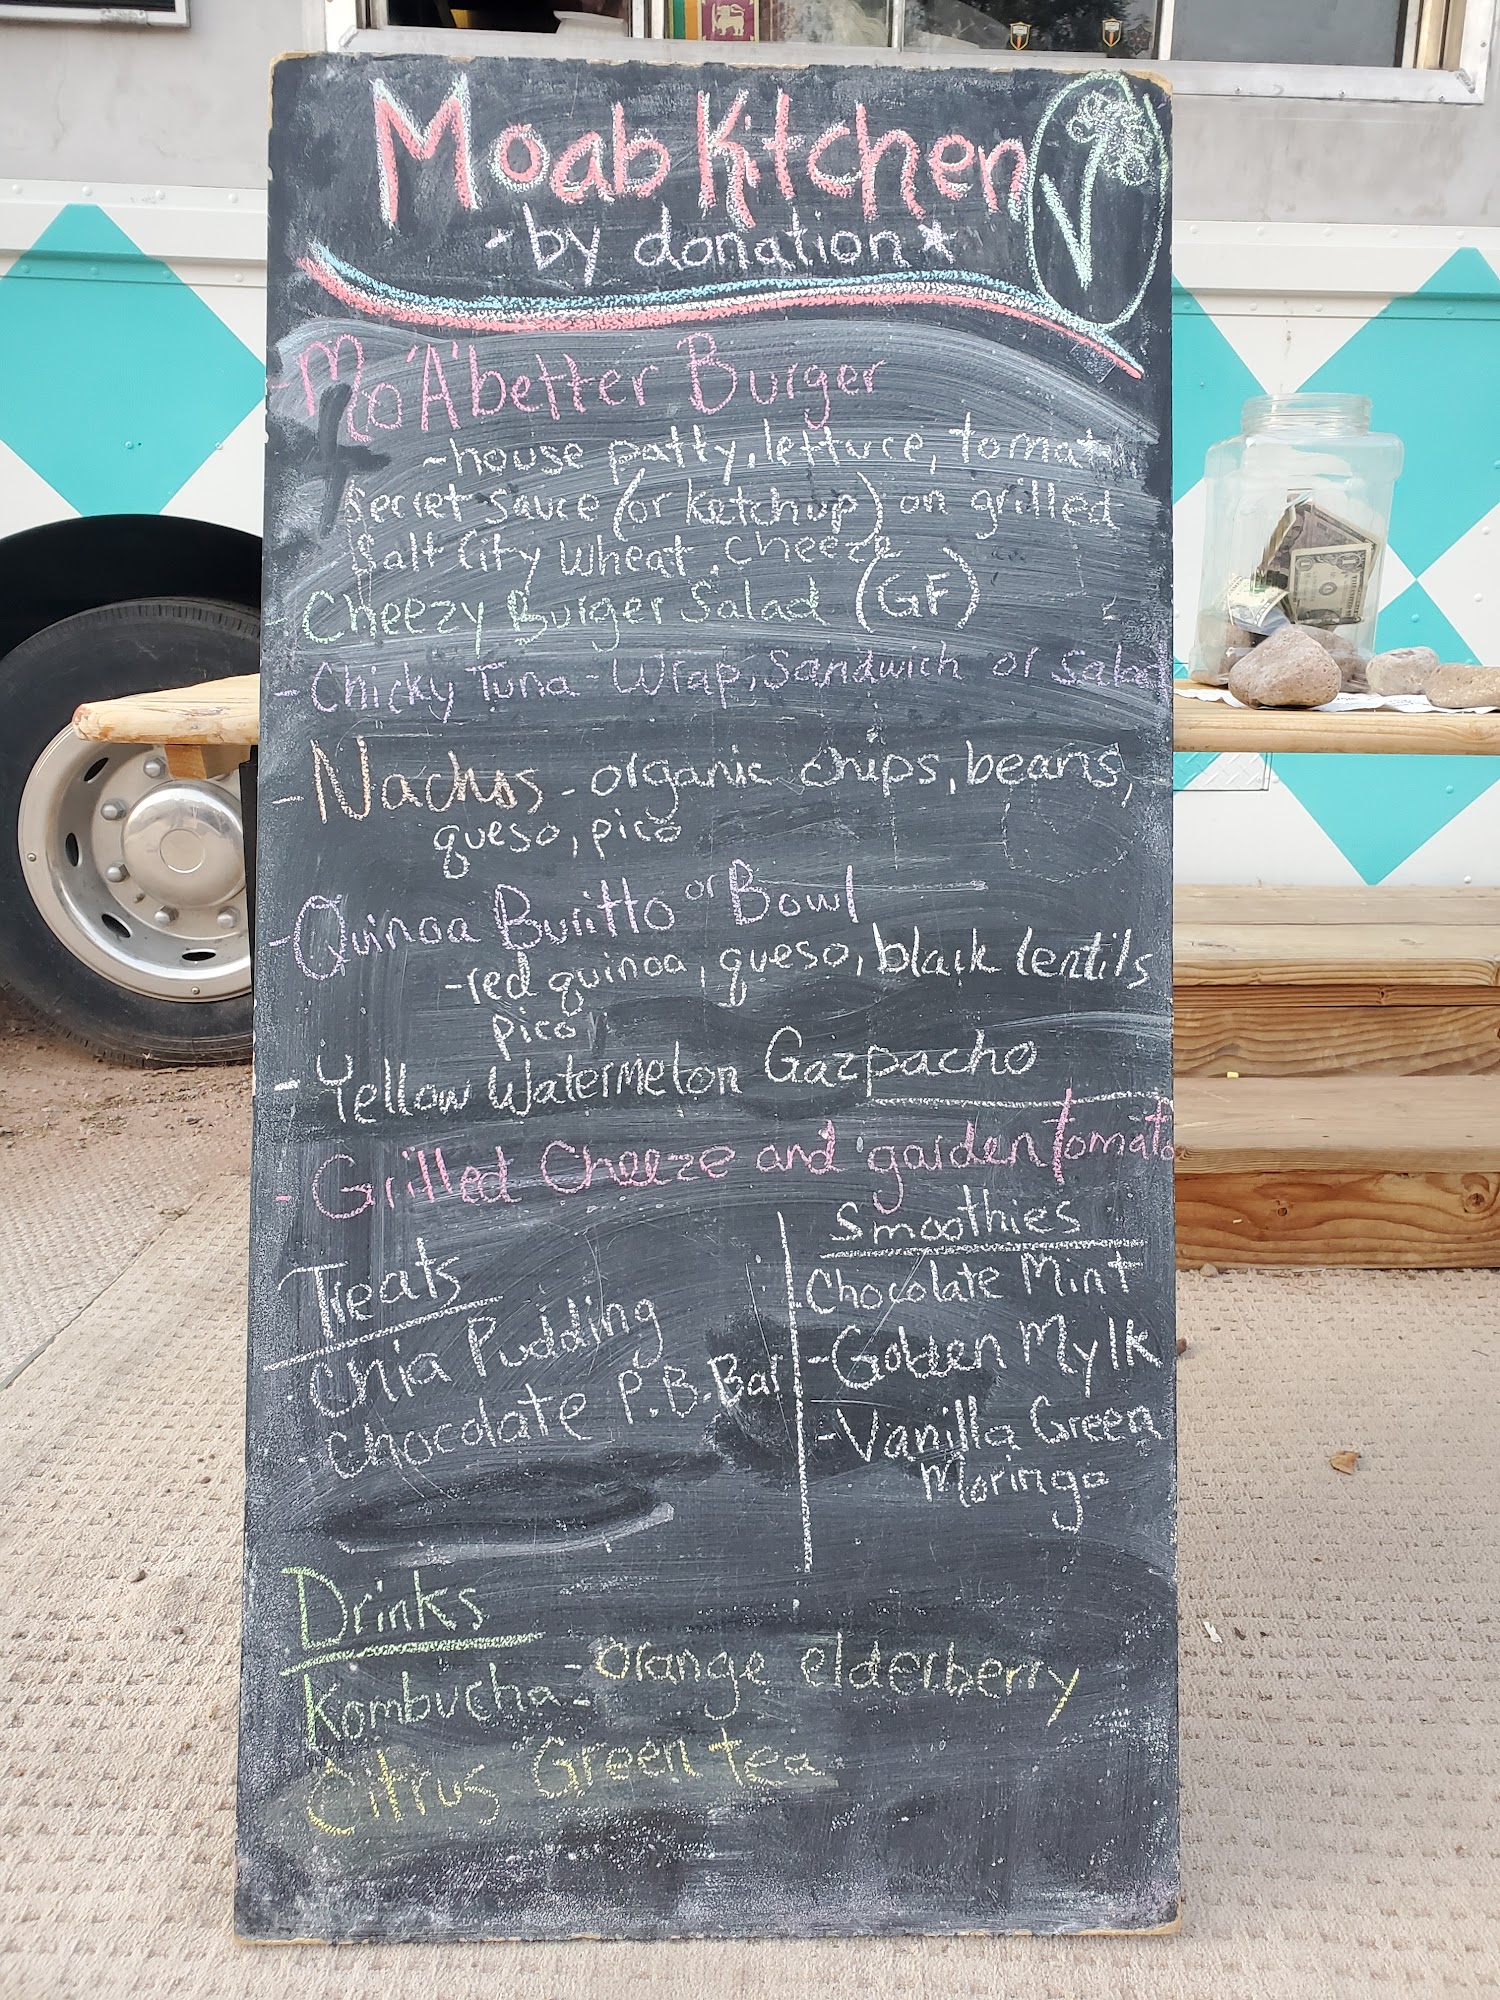 Moab Kitchen
- by donation *
V
- Mo'A'better Burger
- house patty, lettuce, tomato
Secret Sauce (or ketchup) on grilled
Salt City Wheat. Cheeze
- Cheezy Burger Salad (GF)
- Chicky Tuna - Wrap, Sandwich or Salad
- Nachos - organic chips, beans,
queso, pico
- Quinoa Buritto or Bowl
- red quinoa, queso, black lentils
pico
- Yellow Watermelon Gazpacho
- Grilled Cheeze and garden tomato
Treats
- Chia Pudding
- Chocolate P.B. Bar
Smoothies
- Chocolate Mint
- Golden Mylk
- Vanilla Green
Moringa
Drinks
Kombucha - Orange elderberry
Citrus Green tea